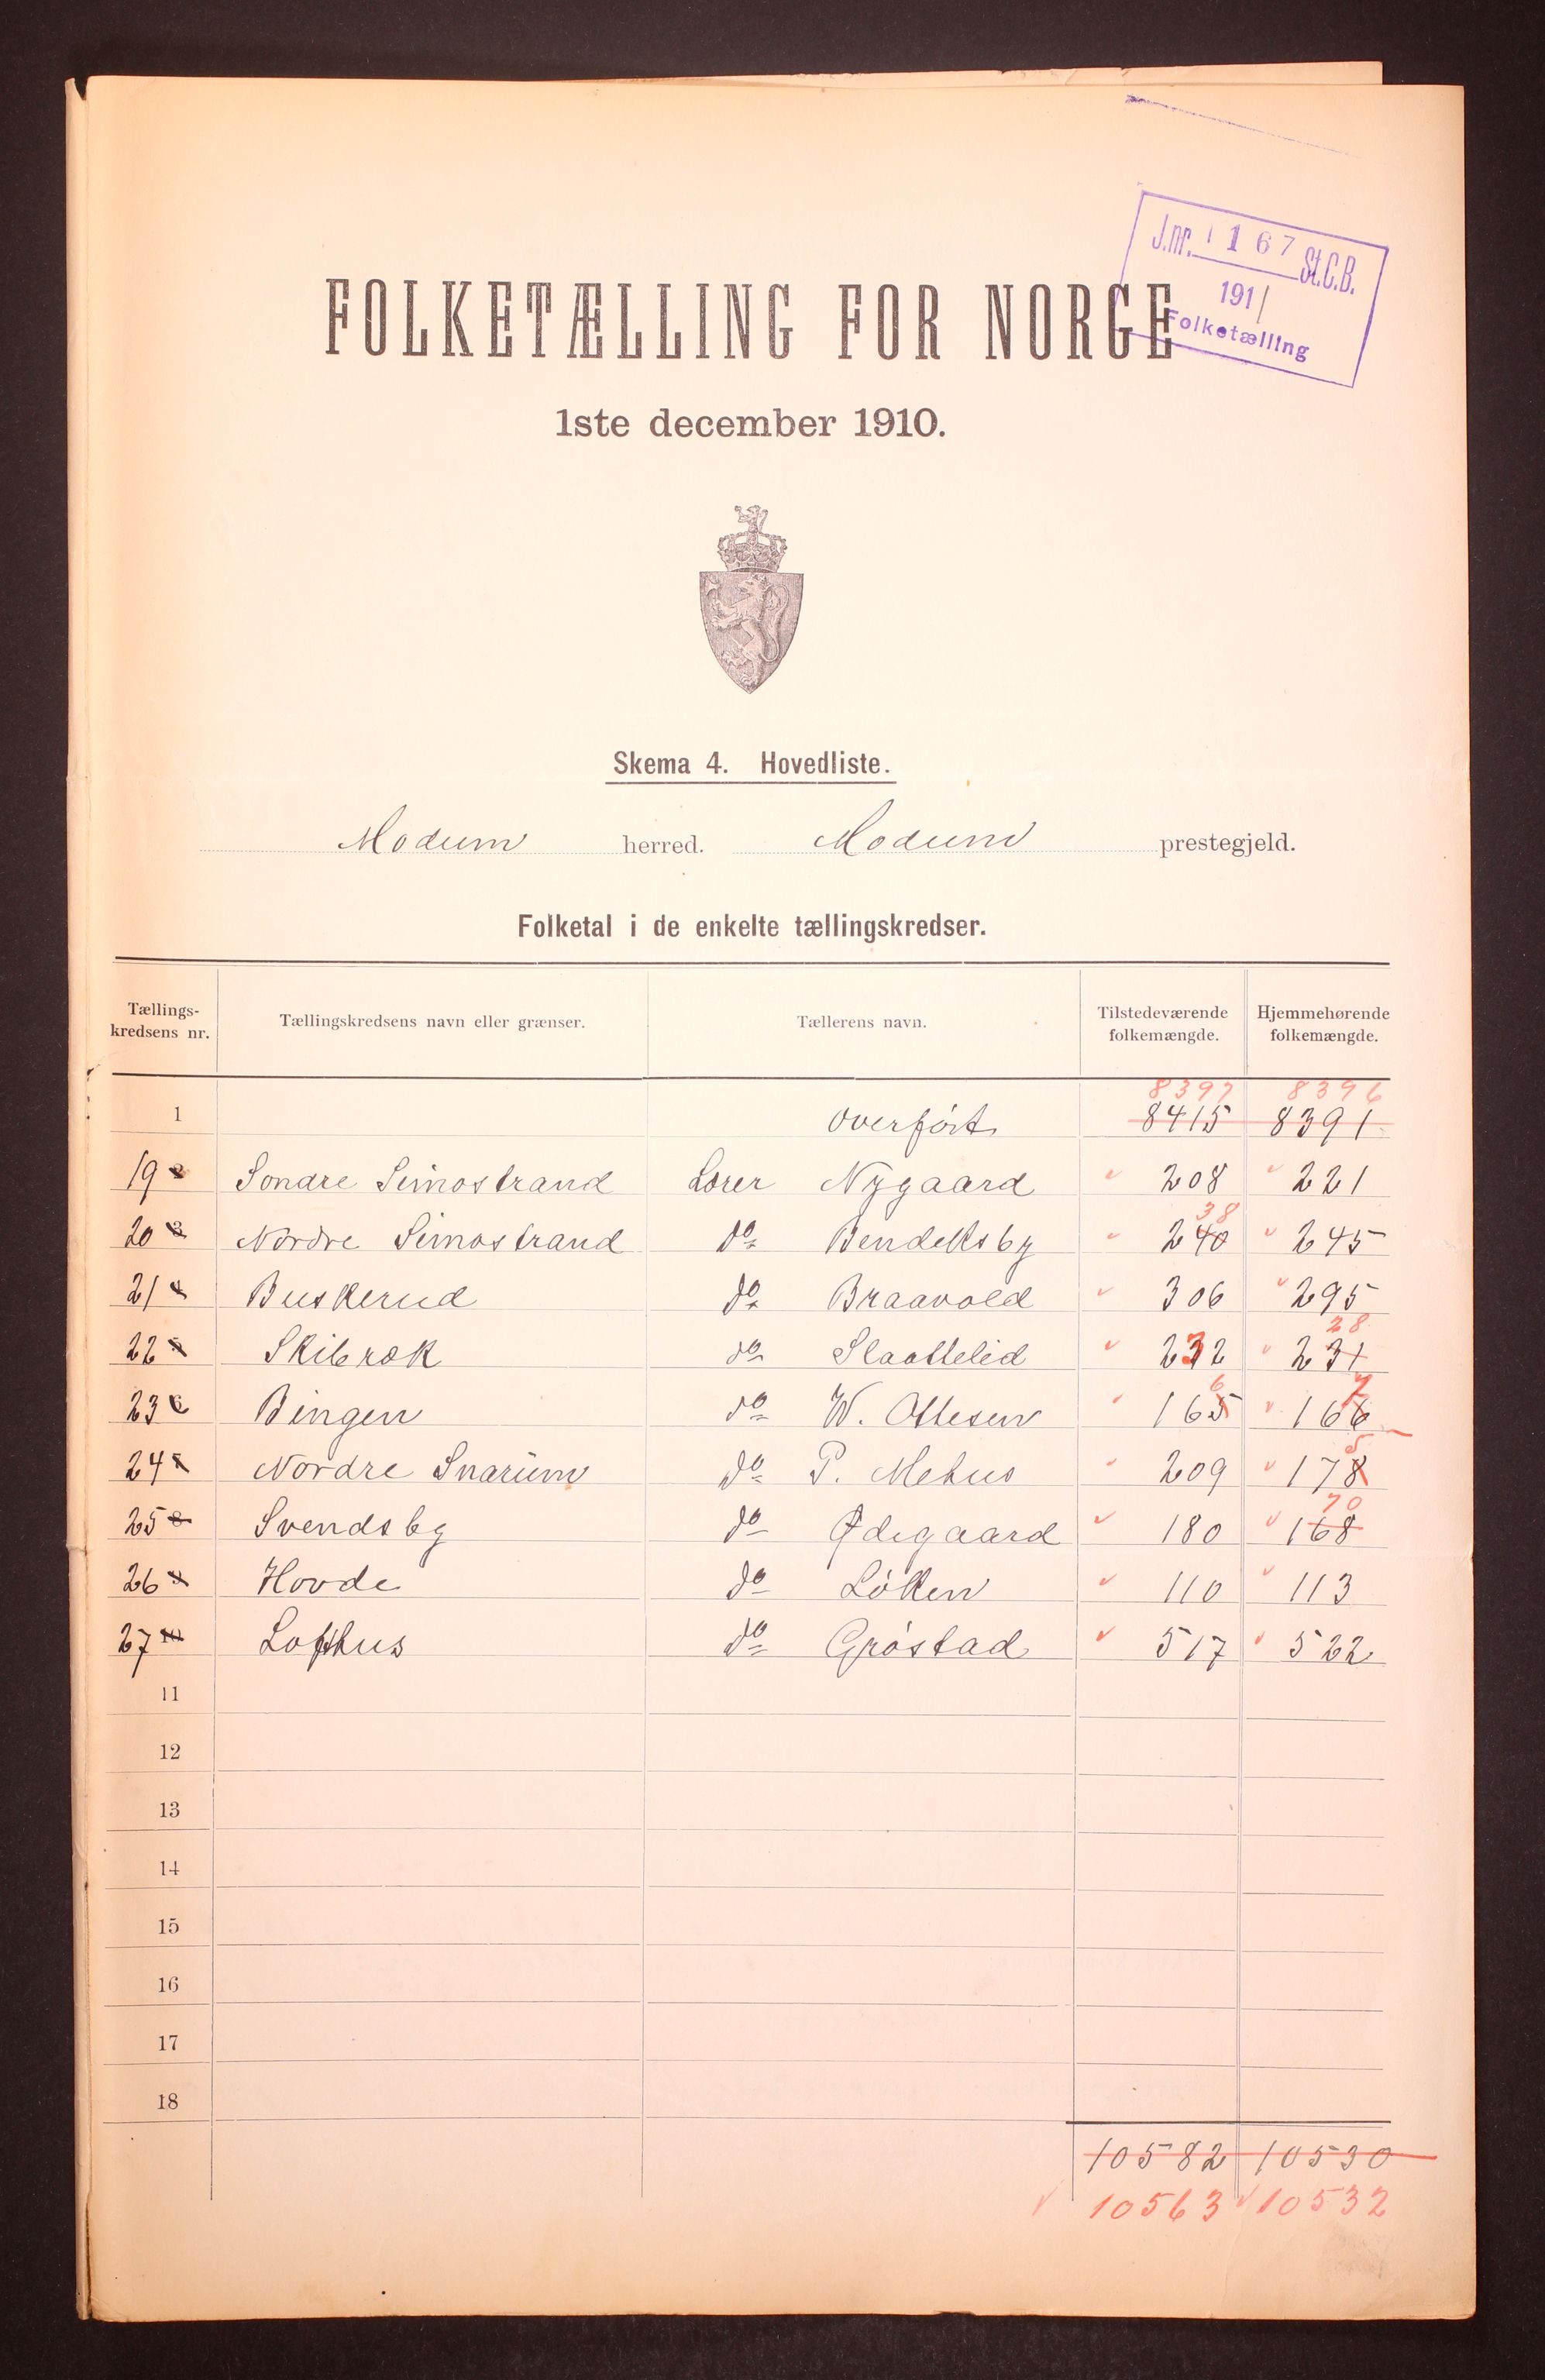 J.nr. 1167 St.C.B.
1911
Folketælling
FOLKETÆLLING FOR NORGE
1ste december 1910.
Skema 4. Hovedliste.
Modum herred. Modum prestegjeld.
Folketal i de enkelte tællingskredser.
Tællings-kredsens nr. Tællingskredsens navn eller grænser. Tællerens navn. Tilstedeværende folkemængde. Hjemmehørende folkemængde.
8397 8396
1 overført 8415 8391
19 2 Søndre Simostrand Lærer Nygaard 208 221
38
20 3 Nordre Simostrand do Bendeksby 240 245
21 4 Buskerud do Braavold 306 295
28
22 5 Skibræk do Slaattelid 232 231
6 7
23 6 Bingen do W. Ottesen 165 166
5
24 7 Nordre Snarum do P. Mehus 209 178
70
25 8 Svendsby do Ødegaard 180 168
26 9 Hovde do Løkken 110 113
27 10 Lofthus do Grøstad 517 522
11
12
13
14
15
16
17
18
10582 10530
10563 10532